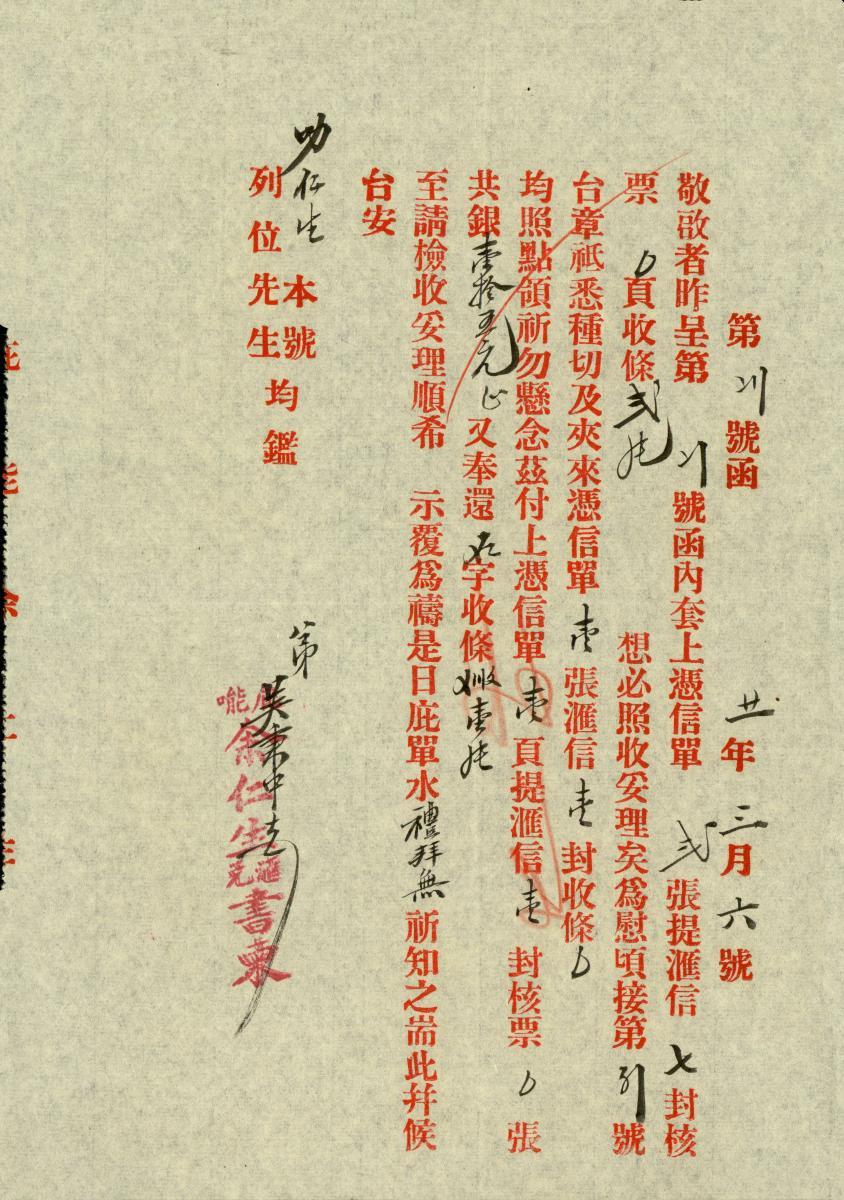 廿年三月六號
第〢〣號函
敬啟者昨呈第〢〣號函內套上憑信單弍張提滙信七封核
票〇頁收條弍[紙] 想必照收妥理矣為慰頃接第號
台章祗悉種切及夾來憑信單壹張滙信壹封收條〇
均照點領祈勿懸念茲付上憑信單壹頁提滙信壹封核票〇張
共銀壹拾五元正又奉還字收條壹
至請檢收妥理順希 示覆為禱是日庇單水禮拜無祈知之耑此幷候
台安
叻仁生本號
列位先生均鑑
弟
庇能余仁生滙兌書柬